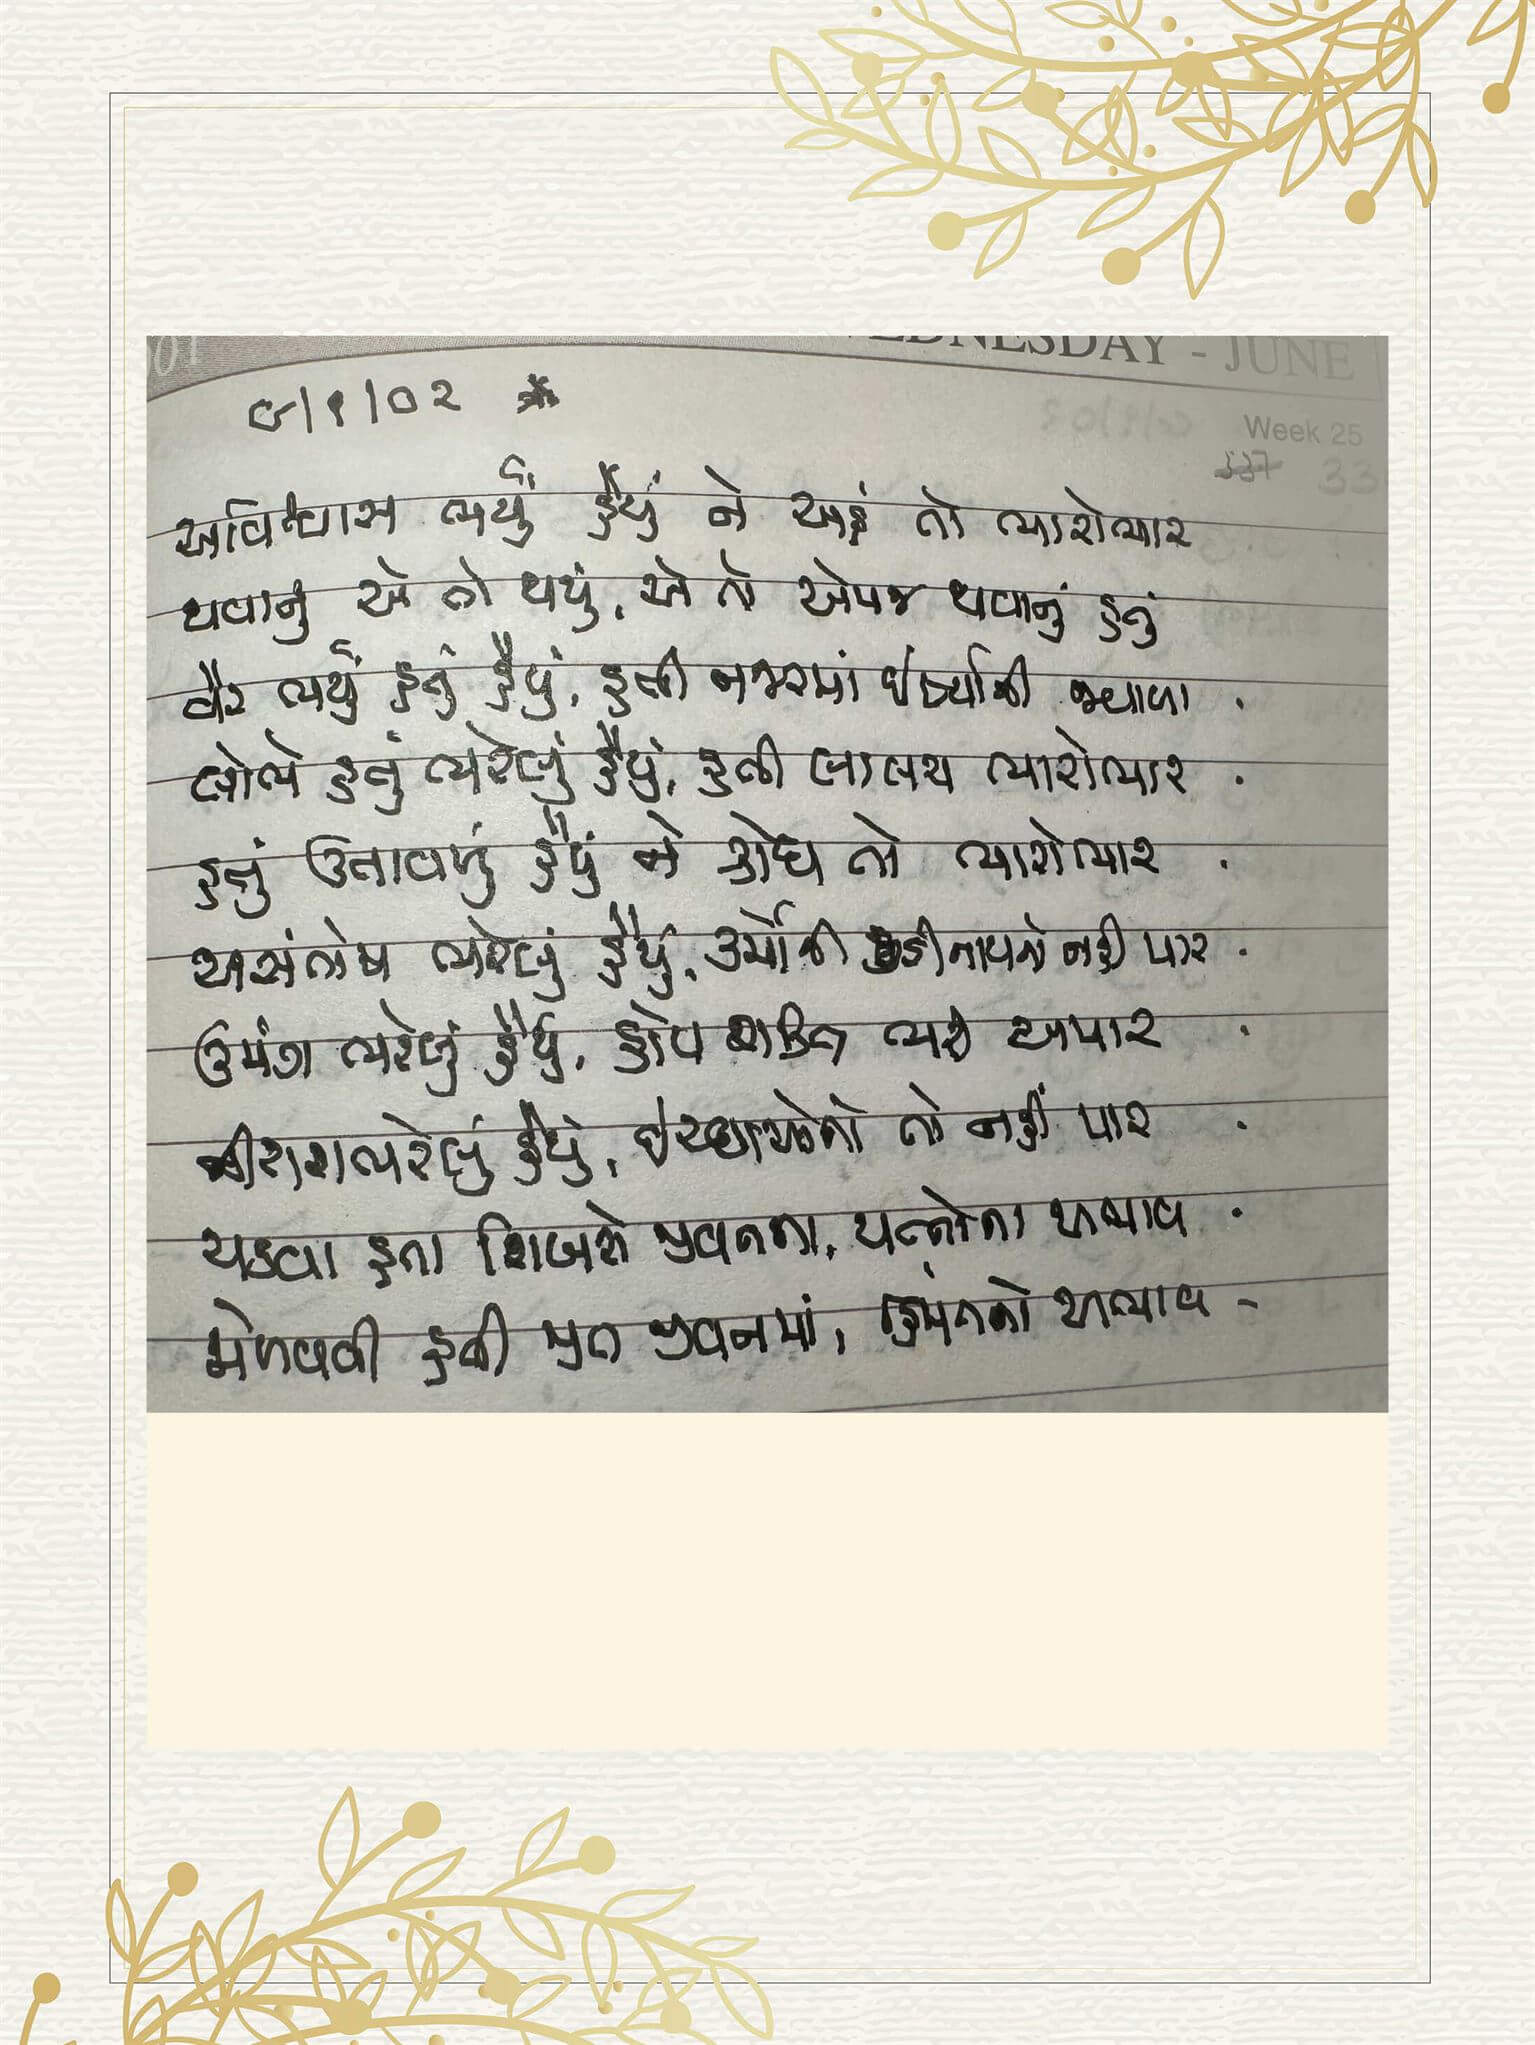 WEDNESDAY - JUNE
Week 25
337
૯/૧/૦૨
અવિશ્વાસ ભર્યું હૈયું ને અહં તો ભારોભાર
થવાનું એ તો થયું, એ તો એમજ થવાનું હતું
વૈર ભર્યું હતું હૈયું, હતી નજરમાં ઈર્ષ્યાની જ્વાળા .
લોભે હતું ભરેલું હૈયું, હતી લાલચ ભારોભાર .
હતું ઉતાવળું હૈયું ને ક્રોધ તો ભારોભાર .
અસંતોષ ભરેલું હૈયું, ઉર્મીની નહી પાર .
ઉમંગ ભરેલું હૈયું, હોય શક્તિ અપાર .
નીરાશાભરેલું હૈયું, ઈચ્છાઓનો તો નહીં પાર .
ચડવા હતા શિખરો જીવનના, યત્નોના અભાવ .
મેળવવી હતી જીત જીવનમાં, હિંમતનો અભાવ -